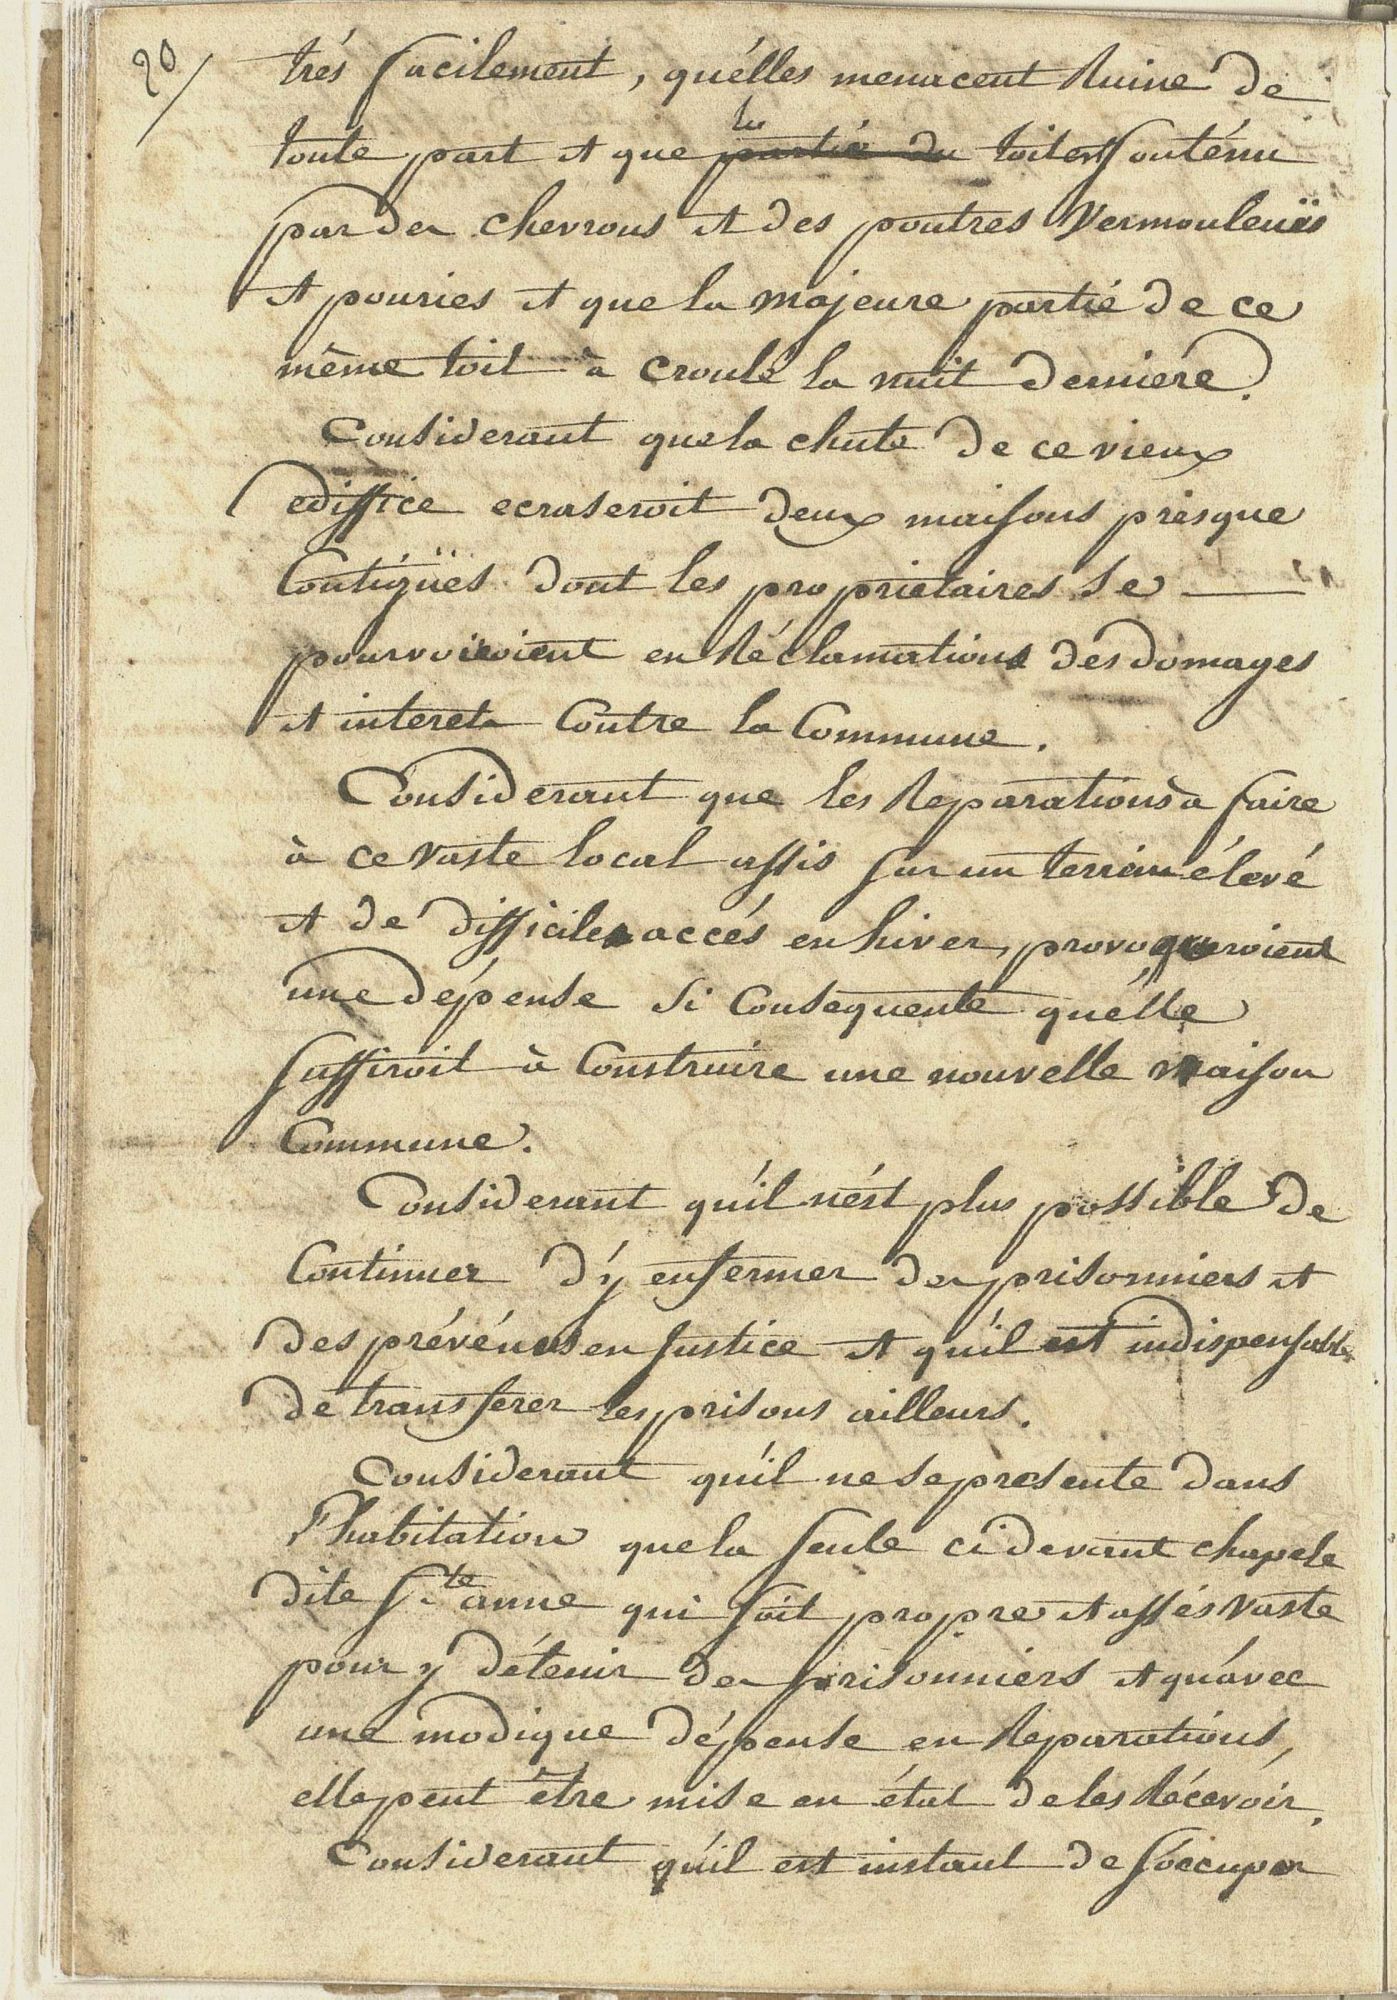 20/
trés facilement, qu'élles menacent Ruine de
toute part et que le partie du toit est souténu
par des chevrons et des poutres Vermouleuës
et pouries et que la majeure partié de ce
même toit à croulé la nuit derniere.
Considerant que la chute de ce vieux
ediffice ecraseroit deux maisons présque
Contigües dont les proprietaires se —
pourvoiroient en Réclamations des domages
et interets Contre la Commune.
Considerant que les Reparations à faire
à ce vaste local assis sur un terrein élevé
et de difficile accés en hiver, provoqueroient
une dépense si Consequente qu'élle
suffiroit à Construire une nouvelle maison
Commune.
Considerant qu'il n'ést plus possible de
Continuer d'y enfermer des prisonniers et
des prévénus en Justice et qu'il est indispensable
de transferer les prisons ailleurs.
Considerant qu'il ne se presente dans
l'habitation que la seule ci devant chapele
dite Ste anne qui soit propre et assés vaste
pour y détenir des prisonniers et qu'avec
une modique dépense en Reparations,
elle peut être mise en état de les Récevoir.
Considerant qu'il est instant de s'occuper